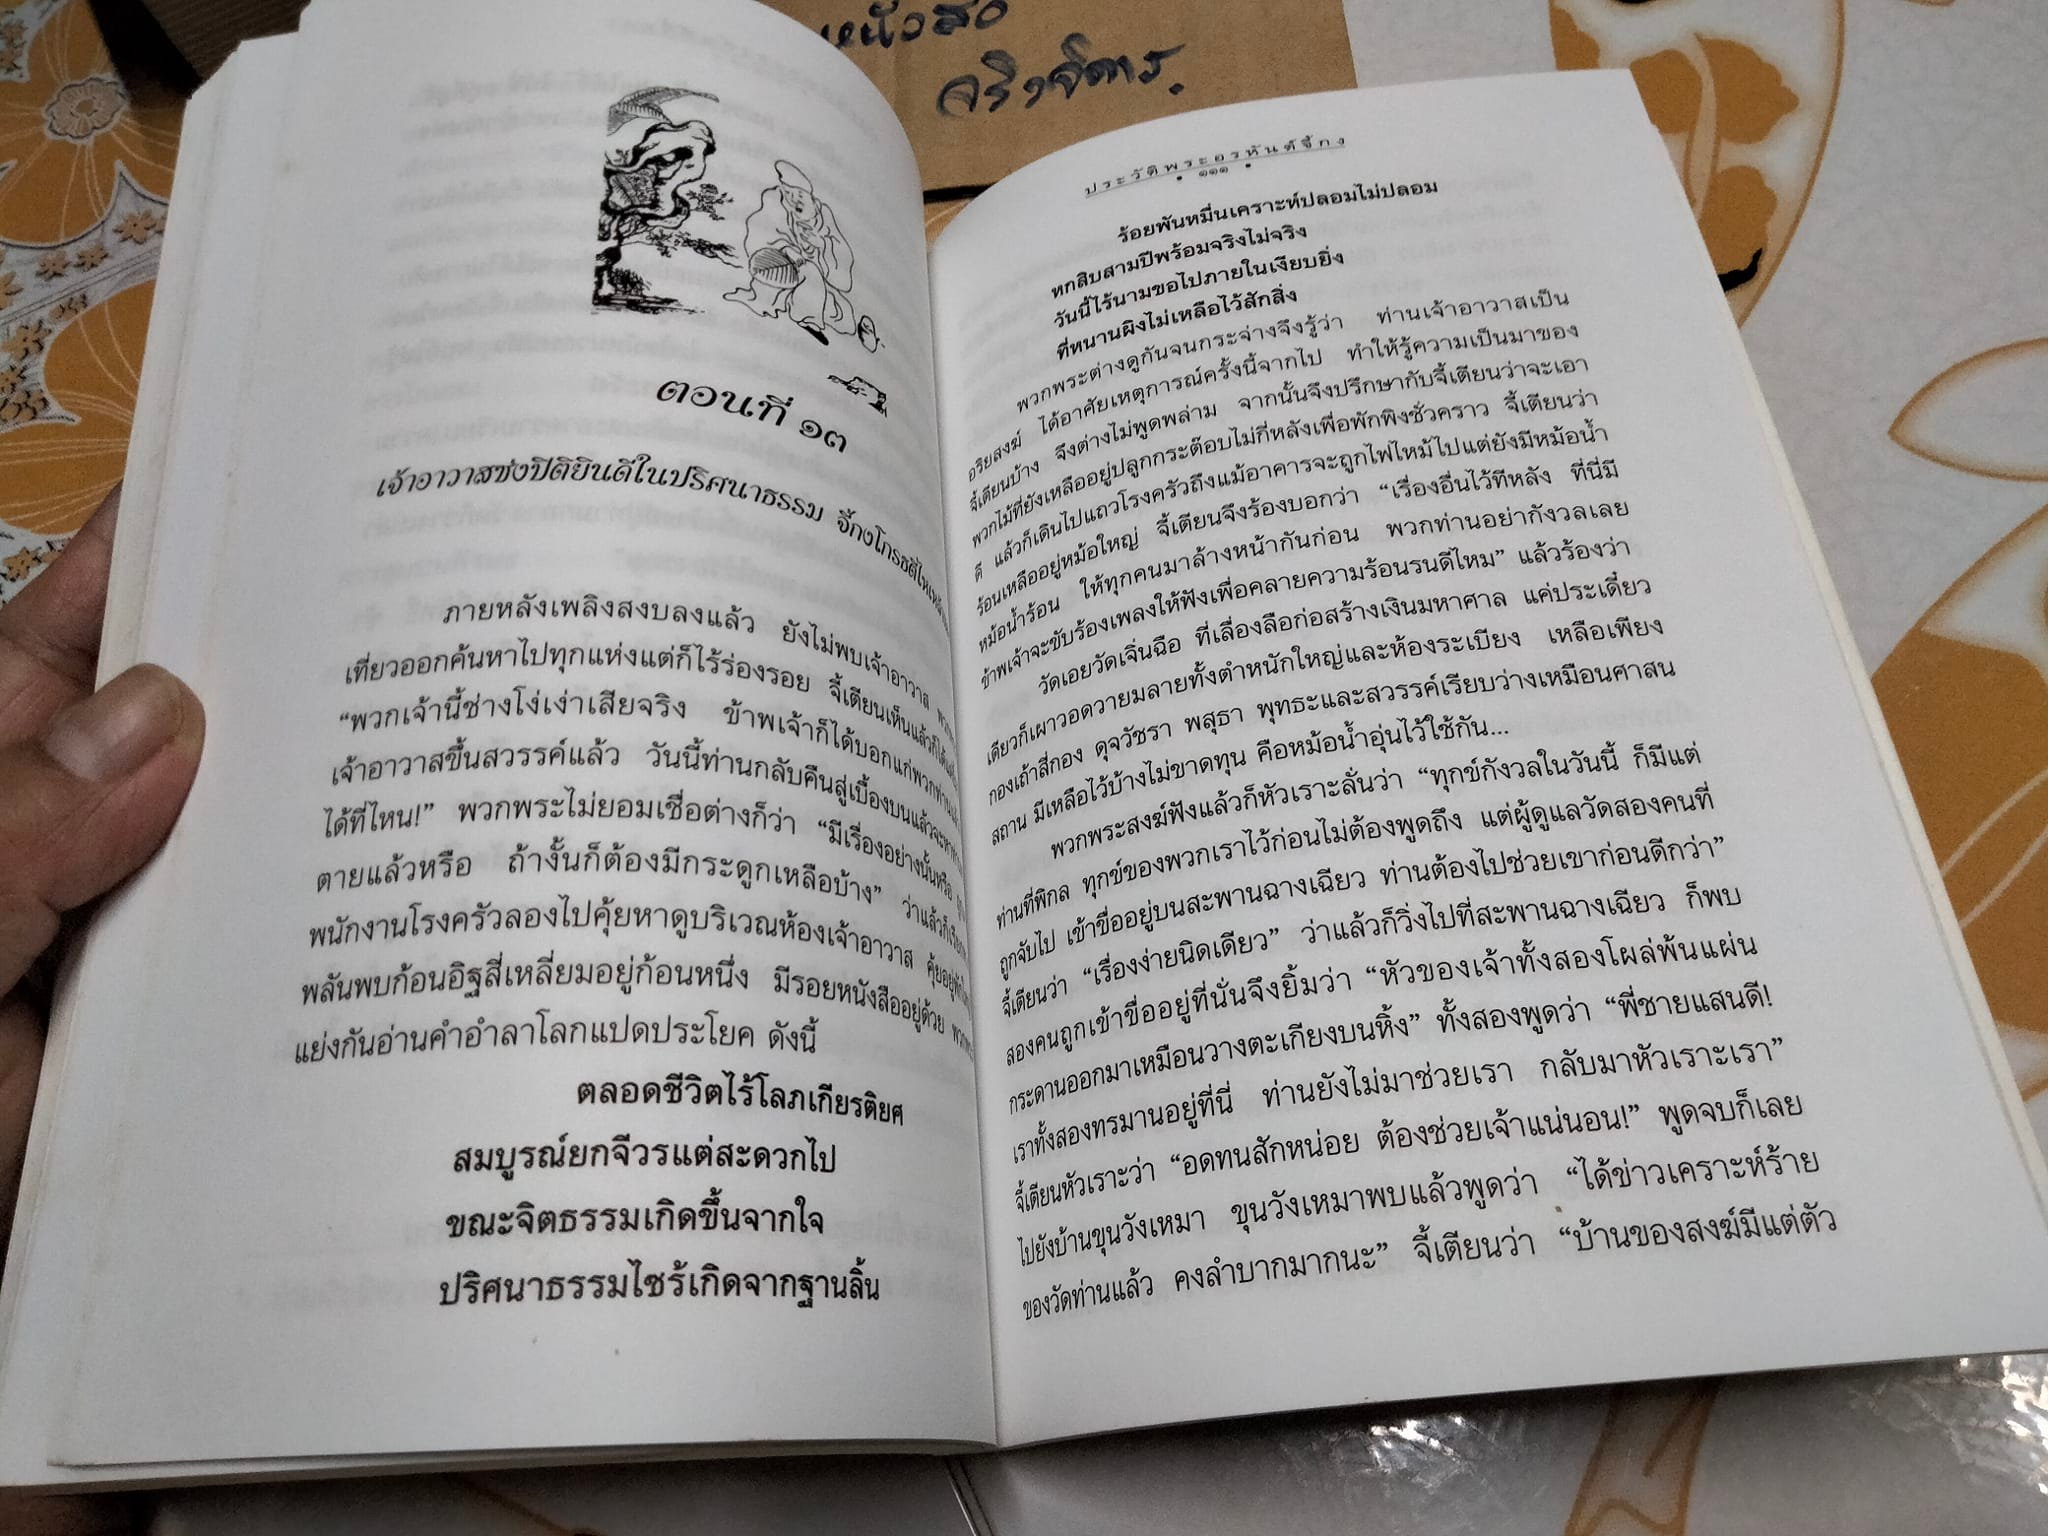 หนังสือ
จริงจิตาร.
ตอนที่ ๑๓
เจ้าอาวาสซ่งปิติยินดีในปริศนาธรรม จี้กงโกรธตีไหเหล้า
ภายหลังเพลิงสงบลงแล้ว ยังไม่พบเจ้าอาวาส
เที่ยวออกค้นหาไปทุกแห่งแต่ก็ไร้ร่องรอย จี้เตียนเห็นแล้วก็ได้แต่
“พวกเจ้านี้ช่างโง่เง่าเสียจริง ข้าพเจ้าก็ได้บอกแก่พวกท่าน
เจ้าอาวาสขึ้นสวรรค์แล้ว วันนี้ท่านกลับคืนสู่เบื้องบนแล้วจะหา
ได้ที่ไหน!” พวกพระไม่ยอมเชื่อต่างก็ว่า “มีเรื่องอย่างนั้นหรือ
ตายแล้วหรือ ถ้างั้นก็ต้องมีกระดูกเหลือบ้าง” ว่าแล้วก็เรียก
พนักงานโรงครัวลองไปคุ้ยหาดูบริเวณห้องเจ้าอาวาส คุ้ยอยู่
พลันพบก้อนอิฐสี่เหลี่ยมอยู่ก้อนหนึ่ง มีรอยหนังสืออยู่ด้วย
แย่งกันอ่านคำอำลาโลกแปดประโยค ดังนี้
ตลอดชีวิตไร้โลภเกียรติยศ
สมบูรณ์ยกจีวรแต่สะดวกไป
ขณะจิตธรรมเกิดขึ้นจากใจ
ปริศนาธรรมไซร้เกิดจากฐานลิ้น
ประวัติพระอรหันต์จี้กง
• ๑๑๑ •
ร้อยพันหมื่นเคราะห์ปลอมไม่ปลอม
หกสิบสามปีพร้อมจริงไม่จริง
วันนี้ไร้นามขอไปภายในเงียบยิ่ง
ที่หนานผิงไม่เหลือไว้สักสิ่ง
พวกพระต่างดูกันจนกระจ่างจึงรู้ว่า ท่านเจ้าอาวาสเป็น
อริยสงฆ์ ได้อาศัยเหตุการณ์ครั้งนี้จากไป ทำให้รู้ความเป็นมาของ
จี้เตียนบ้าง จึงต่างไม่พูดพล่าม จากนั้นจึงปรึกษากับจี้เตียนว่าจะเอา
พวกไม้ที่ยังเหลืออยู่ปลูกกระต๊อบไม่กี่หลังเพื่อพักพิงชั่วคราว จี้เตียนว่า
ดี แล้วก็เดินไปแถวโรงครัวถึงแม้อาคารจะถูกไฟไหม้ไปแต่ยังมีหม้อน้ำ
ร้อนเหลืออยู่หม้อใหญ่ จี้เตียนจึงร้องบอกว่า “เรื่องอื่นไว้ทีหลัง ที่นี่มี
หม้อน้ำร้อน ให้ทุกคนมาล้างหน้ากันก่อน พวกท่านอย่ากังวลเลย
ข้าพเจ้าจะขับร้องเพลงให้ฟังเพื่อคลายความร้อนรนดีไหม” แล้วร้องว่า
วัดเอยวัดเจิ้นฉือ ที่เลื่องลือก่อสร้างเงินมหาศาล แค่ประเดี๋ยว
เดียวก็เผาวอดวายมลายทั้งตำหนักใหญ่และห้องระเบียง เหลือเพียง
กองเถ้าสี่กอง ดุจวัชรา พสุธา พุทธะและสวรรค์เรียบว่างเหมือนศาสน
สถาน มีเหลือไว้บ้างไม่ขาดทุน คือหม้อน้ำอุ่นไว้ใช้กัน...
พวกพระสงฆ์ฟังแล้วก็หัวเราะลั่นว่า “ทุกข์กังวลในวันนี้ ก็มีแต่
ท่านที่พิกล ทุกข์ของพวกเราไว้ก่อนไม่ต้องพูดถึง แต่ผู้ดูแลวัดสองคนที่
ถูกจับไป เข้าขื่ออยู่บนสะพานฉางเฉียว ท่านต้องไปช่วยเขาก่อนดีกว่า”
จี้เตียนว่า “เรื่องง่ายนิดเดียว” ว่าแล้วก็วิ่งไปที่สะพานฉางเฉียว ก็พบ
สองคนถูกเข้าขื่ออยู่ที่นั่นจึงยิ้มว่า “หัวของเจ้าทั้งสองโผล่พ้นแผ่น
กระดานออกมาเหมือนวางตะเกียงบนหิ้ง” ทั้งสองพูดว่า “พี่ชายแสนดี!
เราทั้งสองทรมานอยู่ที่นี่ ท่านยังไม่มาช่วยเรา กลับมาหัวเราะเรา”
จี้เตียนหัวเราะว่า “อดทนสักหน่อย ต้องช่วยเจ้าแน่นอน!” พูดจบก็เลย
ไปยังบ้านขุนวังเหมา ขุนวังเหมาพบแล้วพูดว่า “ได้ข่าวเคราะห์ร้าย
ของวัดท่านแล้ว คงลำบากมากนะ” จี้เตียนว่า “บ้านของสงฆ์มีแต่ตัว